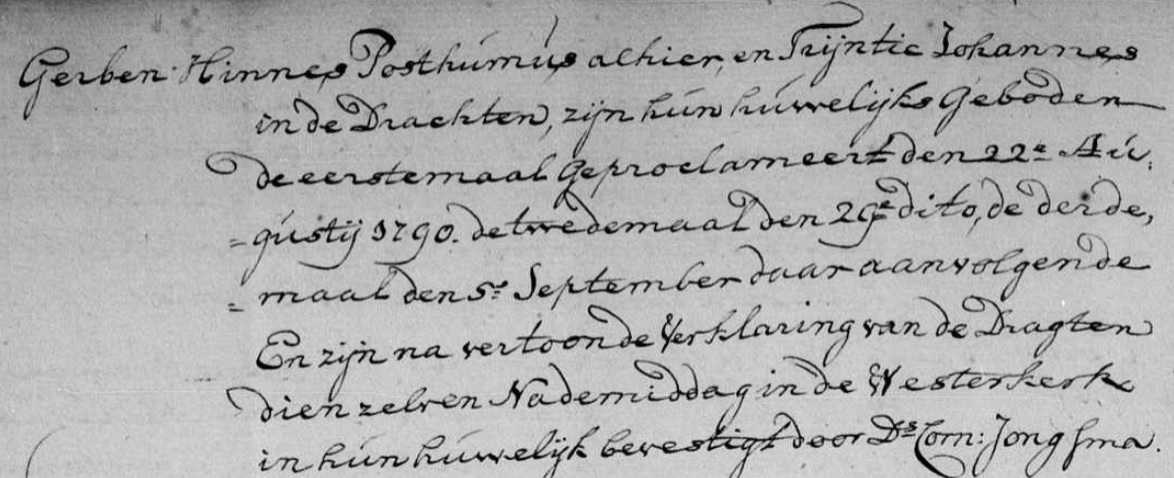 Gerben Hinnes Posthumus alhier, en Trijntie Johannes
in de Drachten, zijn hun huwelijks Geboden
de eerstemaal Geproclameert den 22e Au,
=gustij 1790. de twedemaal den 29e dito, de derde,
=maal den 5e September daar aanvolgende
En zijn na vertoonde Verklaring van de Dragten
dien zelven Nademiddag in de Westerkerk
in hun huwelijk bevestigt door Ds Corn: Jongsma.